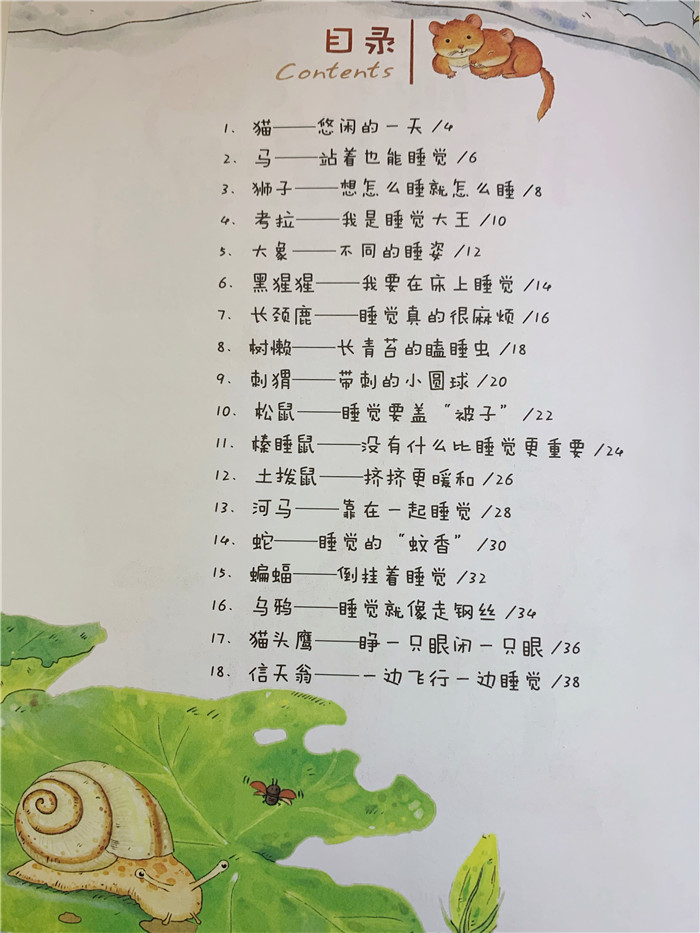 目录
Contents
1. 猫——悠闲的一天 /4
2. 马——站着也能睡觉 /6
3. 狮子——想怎么睡就怎么睡 /8
4. 考拉——我是睡觉大王 /10
5. 大象——不同的睡姿 /12
6. 黑猩猩——我要在床上睡觉 /14
7. 长颈鹿——睡觉真的很麻烦 /16
8. 树懒——长青苔的瞌睡虫 /18
9. 刺猬——带刺的小圆球 /20
10. 松鼠——睡觉要盖“被子” /22
11. 榛睡鼠——没有什么比睡觉更重要 /24
12. 土拨鼠——挤挤更暖和 /26
13. 河马——靠在一起睡觉 /28
14. 蛇——睡觉的“蚊香” /30
15. 蝙蝠——倒挂着睡觉 /32
16. 乌鸦——睡觉就像走钢丝 /34
17. 猫头鹰——睁一只眼闭一只眼 /36
18. 信天翁——一边飞行一边睡觉 /38